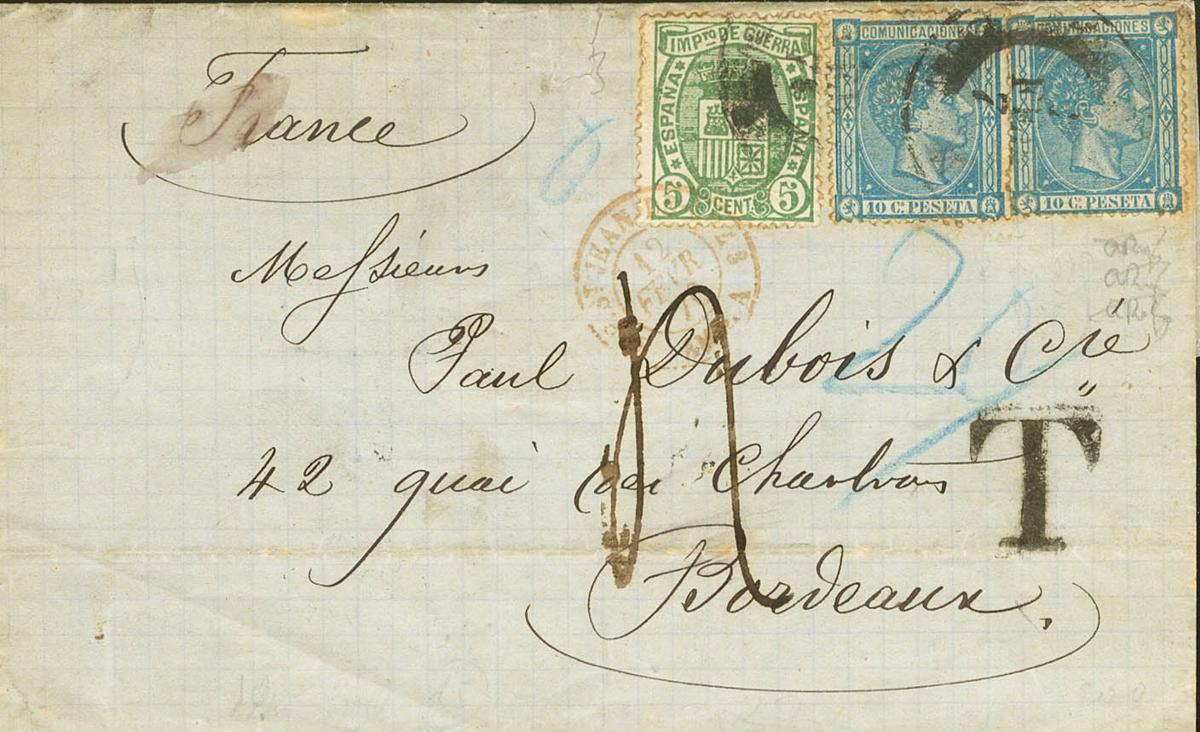 France
IMPTO DE GUERRA
ESPAÑA
ESPAÑA
5 CENT. 5
COMUNICACIONES
10 C. PESETA
COMUNICACIONES
10 C. PESETA
12
FEVR
Messieurs
Paul Dubois & Cie
42 quai des Chartrons
T
Bordeaux.